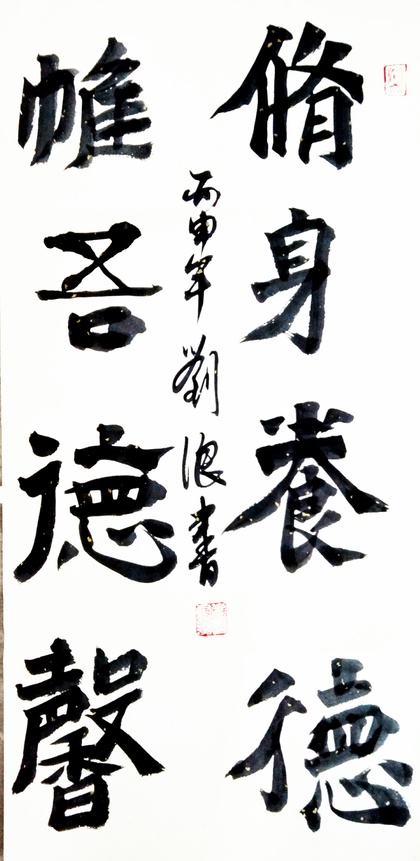 脩身養德
帷吾德馨
丙申年劉浪書